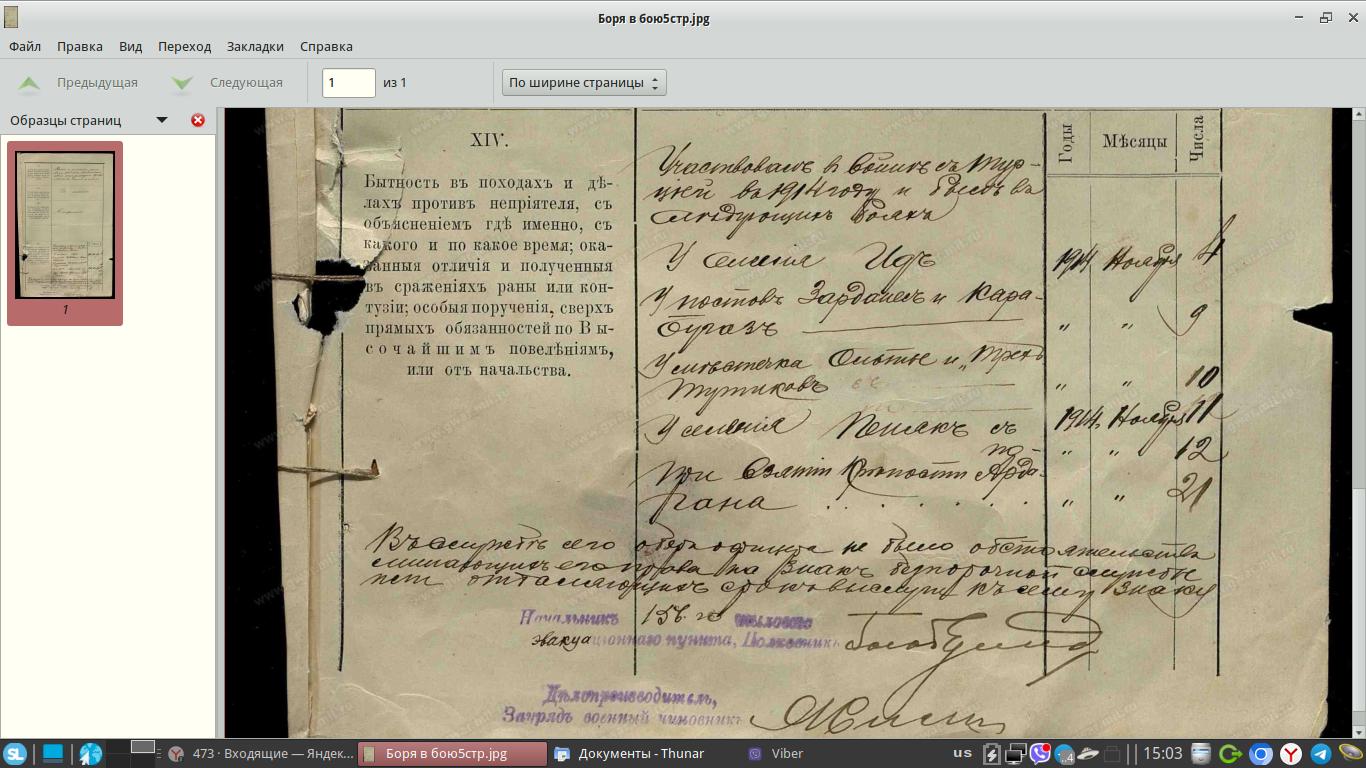 Боря в бою5стр.jpg
Файл Правка Вид Переход Закладки Справка
Предыдущая Следующая 1 из 1 По ширине страницы
Образцы страниц
1
XIV.
Бытность въ походахъ и дѣ-
лахъ противъ непріятеля, съ
объясненіемъ гдѣ именно, съ
какого и по какое время; ока-
занныя отличія и полученныя
въ сраженіяхъ раны или кон-
тузіи; особыя порученія, сверхъ
прямыхъ обязанностей по Вы-
сочайшимъ повелѣніямъ,
или отъ начальства.
Годы Мѣсяцы Числа
Участвовалъ въ войнѣ съ Тур-
ціей въ 1914 году и былъ въ
слѣдующихъ бояхъ
У селенія Идъ 1914 Ноября 4
У постовъ Зарданесъ и Кара-
бугазъ „ „ 9
У мѣстечка Ольты и
„ „ 10
У селенія съ 1914 Ноября 11
по „ „ 12
При взятіи крѣпости Арда-
гана . . . . . . „ „ 21
Въ службѣ сего оберъ-офицера не было обстоятельствъ
лишающихъ его права на знакъ безпорочной службы
или отдаляющихъ срокъ выслуги къ сему знаку
Начальникъ 156 го тыловаго
эвакуаціоннаго пункта, Полковникъ
Дѣлопроизводитель,
Заурядъ военный чиновникъ
473 · Входящие — Яндек... Боря в бою5стр.jpg Документы - Thunar Viber us 15:03